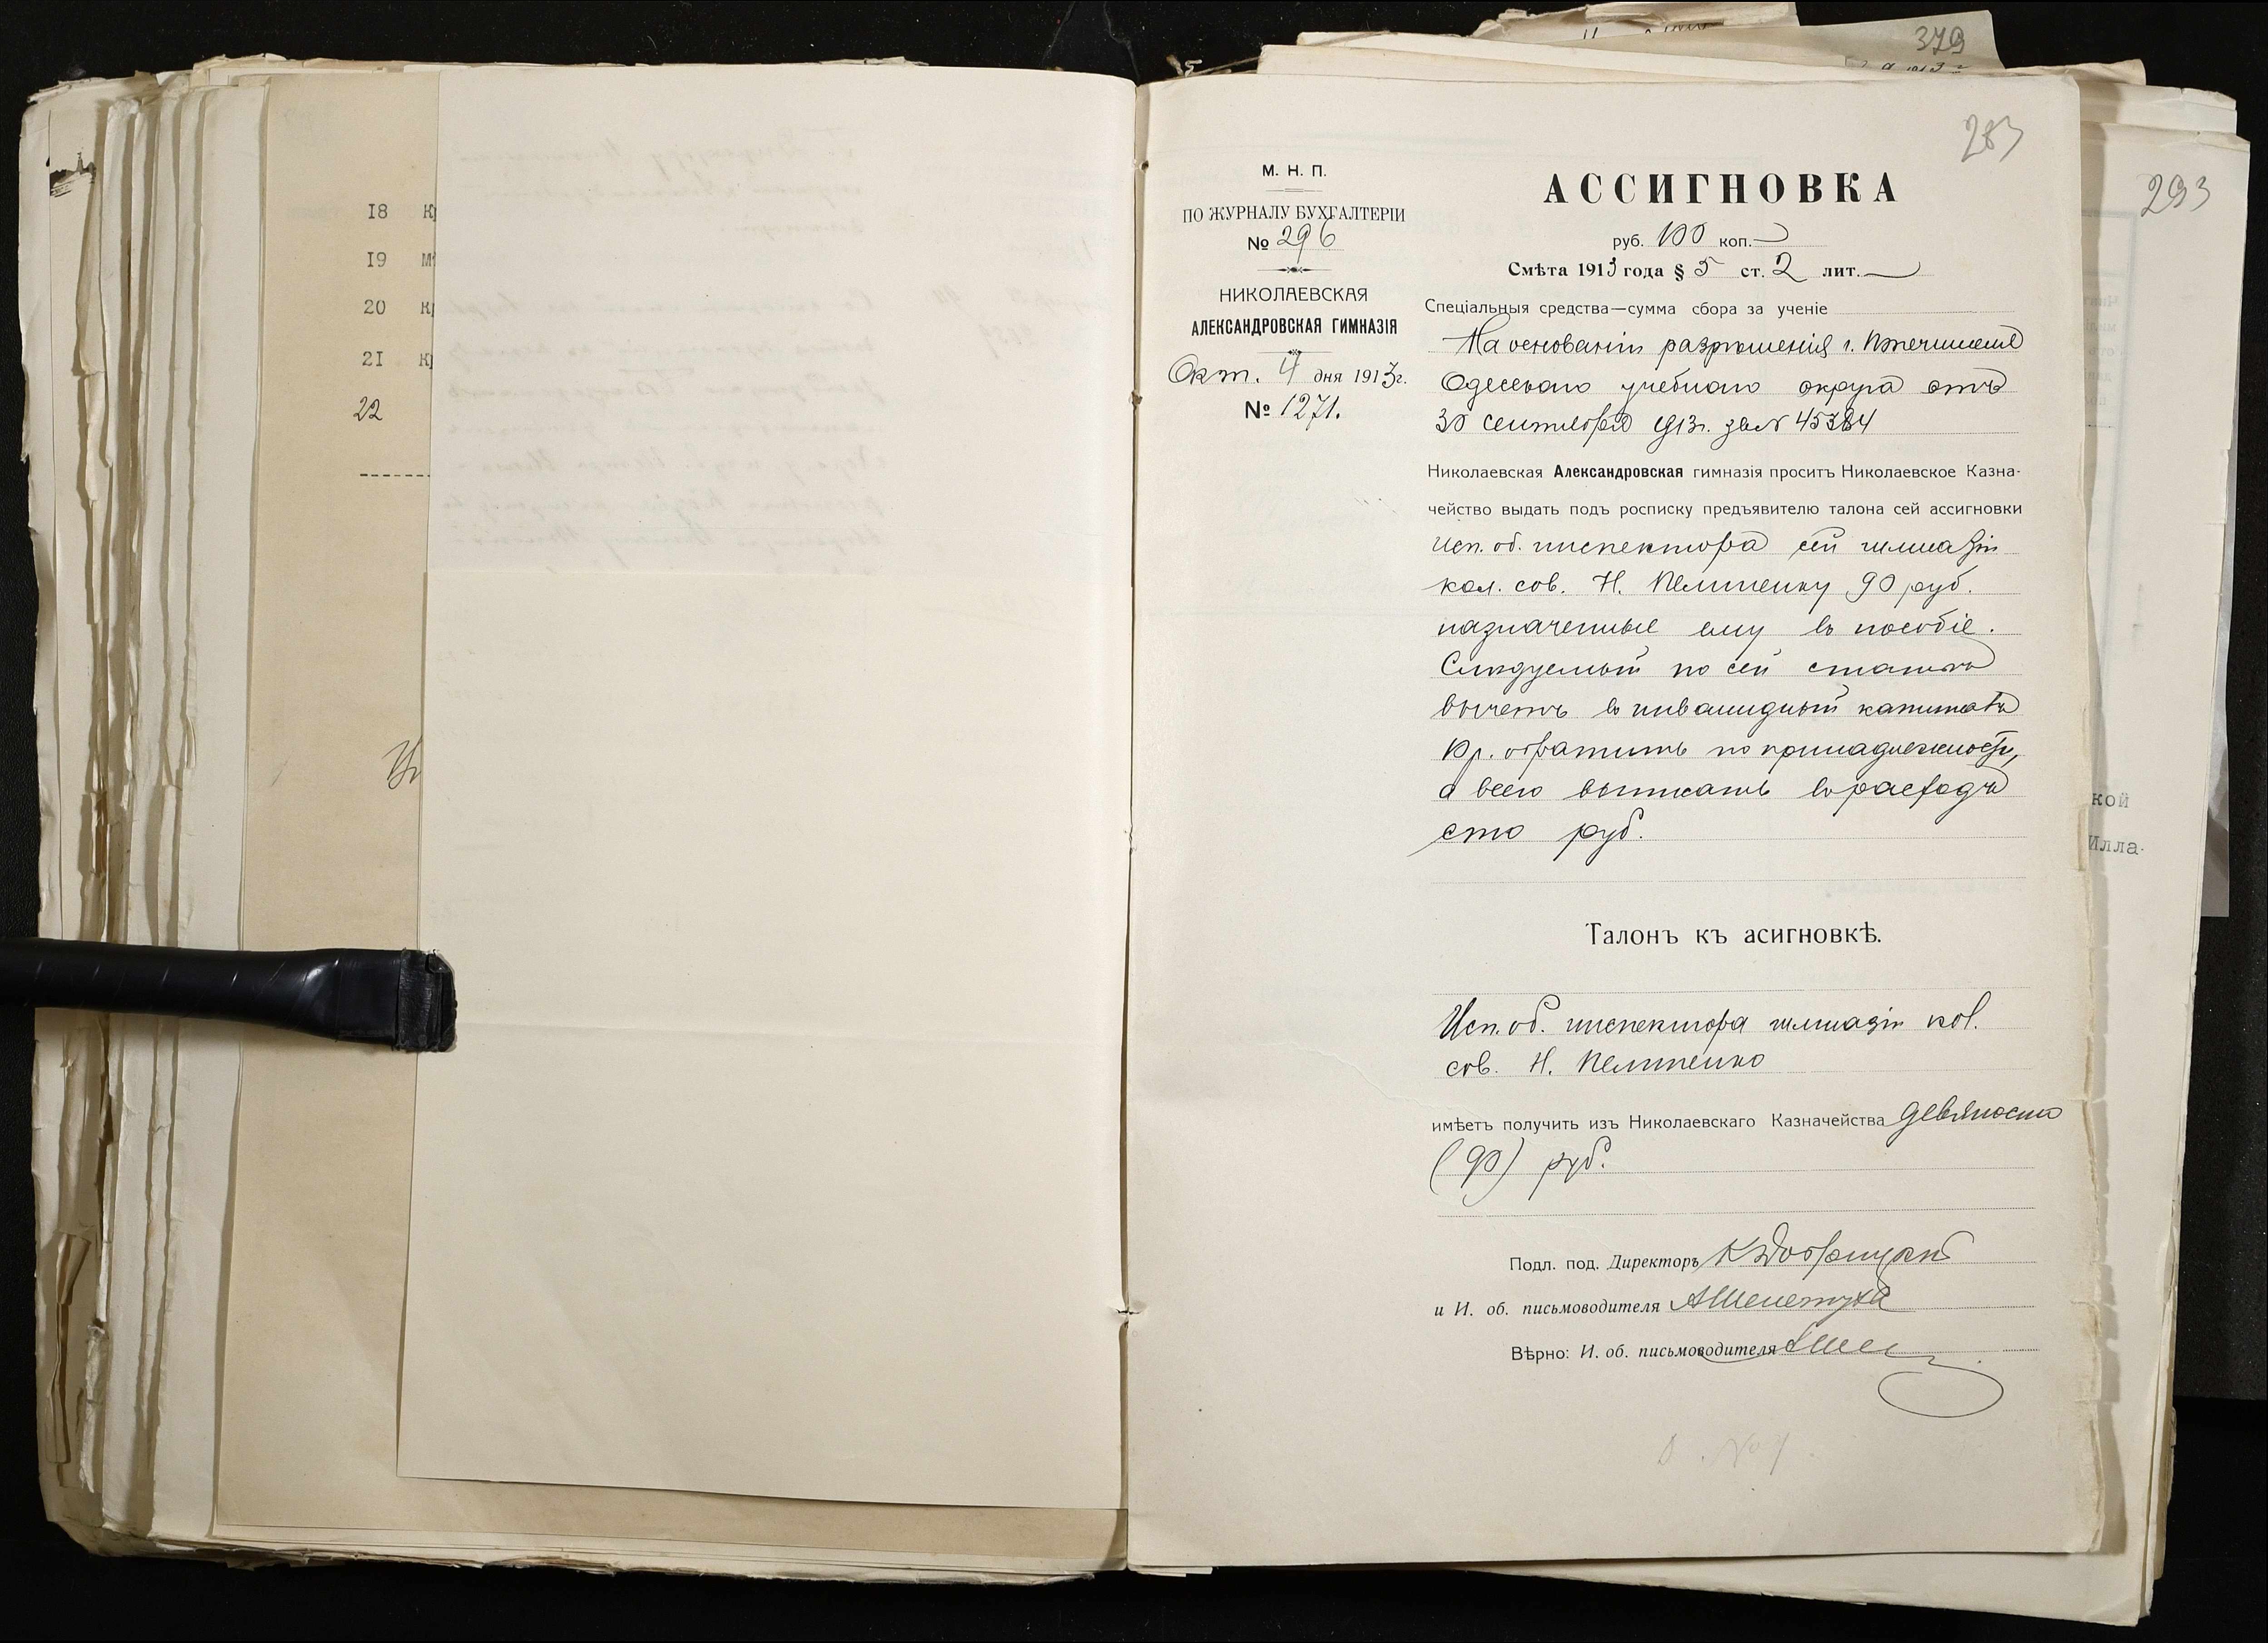 379
293
283
18 к
19 м
20 к
21 к
22
М. Н. П.
ПО ЖУРНАЛУ БУХГАЛТЕРІИ
№ 296
НИКОЛАЕВСКАЯ
АЛЕКСАНДРОВСКАЯ ГИМНАЗІЯ
Окт. 4 дня 1913г.
№ 1271.
АССИГНОВКА
руб. 100 коп. —
Смѣта 1913 года § 5 ст. 2 лит. —
Спеціальныя средства—сумма сбора за ученіе
На основаніи разрѣшенія г. Попечителя
Одесскаго учебнаго округа отъ
30 сентября 1913г. за № 45384
Николаевская Александровская гимназія проситъ Николаевское Казна-
чейство выдать подъ росписку предъявителю талона сей ассигновки
исп. об. инспектора сей гимназіи
кол. сов. Н. Пелипенку 90 руб.
назначенные ему въ пособіе.
Слѣдуемый по сей статьѣ
вычетъ въ инвалидный капиталъ
10 р. обратить по принадлежности,
а всего выписать въ расходъ
сто руб.
Талонъ къ асигновкѣ.
Исп. об. инспектора гимназіи кол.
сов. Н. Пелипенко
имѣетъ получить изъ Николаевскаго Казначейства девяносто
(90) руб.
Подл. под. Директоръ К
и И. об. письмоводителя А Шелетуха
Вѣрно: И. об. письмоводителя АШел
кой
Илла-